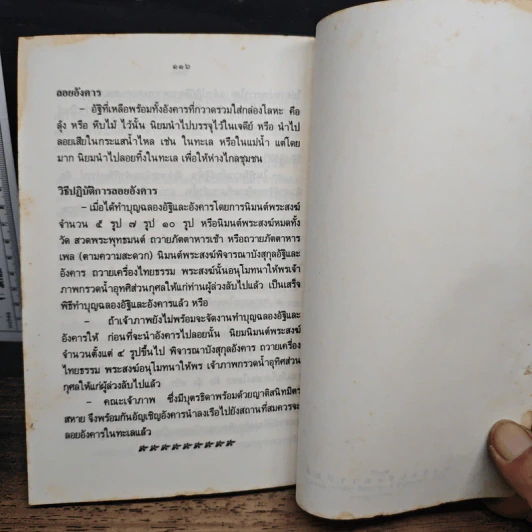 ๑๑๖
ลอยอังคาร
– อัฐิที่เหลือพร้อมทั้งอังคารที่กวาดรวมใส่กล่องโลหะ คือ
ลุ้ง หรือ หีบไม้ ไว้นั้น นิยมนำไปบรรจุไว้ในเจดีย์ หรือ นำไป
ลอยเสียในกระแสน้ำไหล เช่น ในทะเล หรือในแม่น้ำ แต่โดย
มาก นิยมนำไปลอยทิ้งในทะเล เพื่อให้ห่างไกลชุมชน
วิธีปฏิบัติการลอยอังคาร
– เมื่อได้ทำบุญฉลองอัฐิและอังคารโดยการนิมนต์พระสงฆ์
จำนวน ๕ รูป ๗ รูป ๑๐ รูป หรือนิมนต์พระสงฆ์หมดทั้ง
วัด สวดพระพุทธมนต์ ถวายภัตตาหารเช้า หรือถวายภัตตาหาร
เพล (ตามความสะดวก) นิมนต์พระสงฆ์พิจารณาบังสุกุลอัฐิและ
อังคาร ถวายเครื่องไทยธรรม พระสงฆ์นั้นอนุโมทนาให้พรเจ้า
ภาพกรวดน้ำอุทิศส่วนกุศลให้แก่ท่านผู้ล่วงลับไปแล้ว เป็นเสร็จ
พิธีทำบุญฉลองอัฐิและอังคารแล้ว หรือ
– ถ้าเจ้าภาพยังไม่พร้อมจะจัดงานทำบุญฉลองอัฐิและ
อังคารให้ ก่อนที่จะนำอังคารไปลอยนั้น นิยมนิมนต์พระสงฆ์
จำนวนตั้งแต่ ๔ รูปขึ้นไป พิจารณาบังสุกุลอังคาร ถวายเครื่อง
ไทยธรรม พระสงฆ์อนุโมทนาให้พร เจ้าภาพกรวดน้ำอุทิศส่วน
กุศลให้แก่ผู้ล่วงลับไปแล้ว
– คณะเจ้าภาพ ซึ่งมีบุตรธิดาพร้อมด้วยญาติสนิทมิตร
สหาย จึงพร้อมกันอัญเชิญอังคารนำลงเรือไปยังสถานที่สมควรจะ
ลอยอังคารในทะเลแล้ว